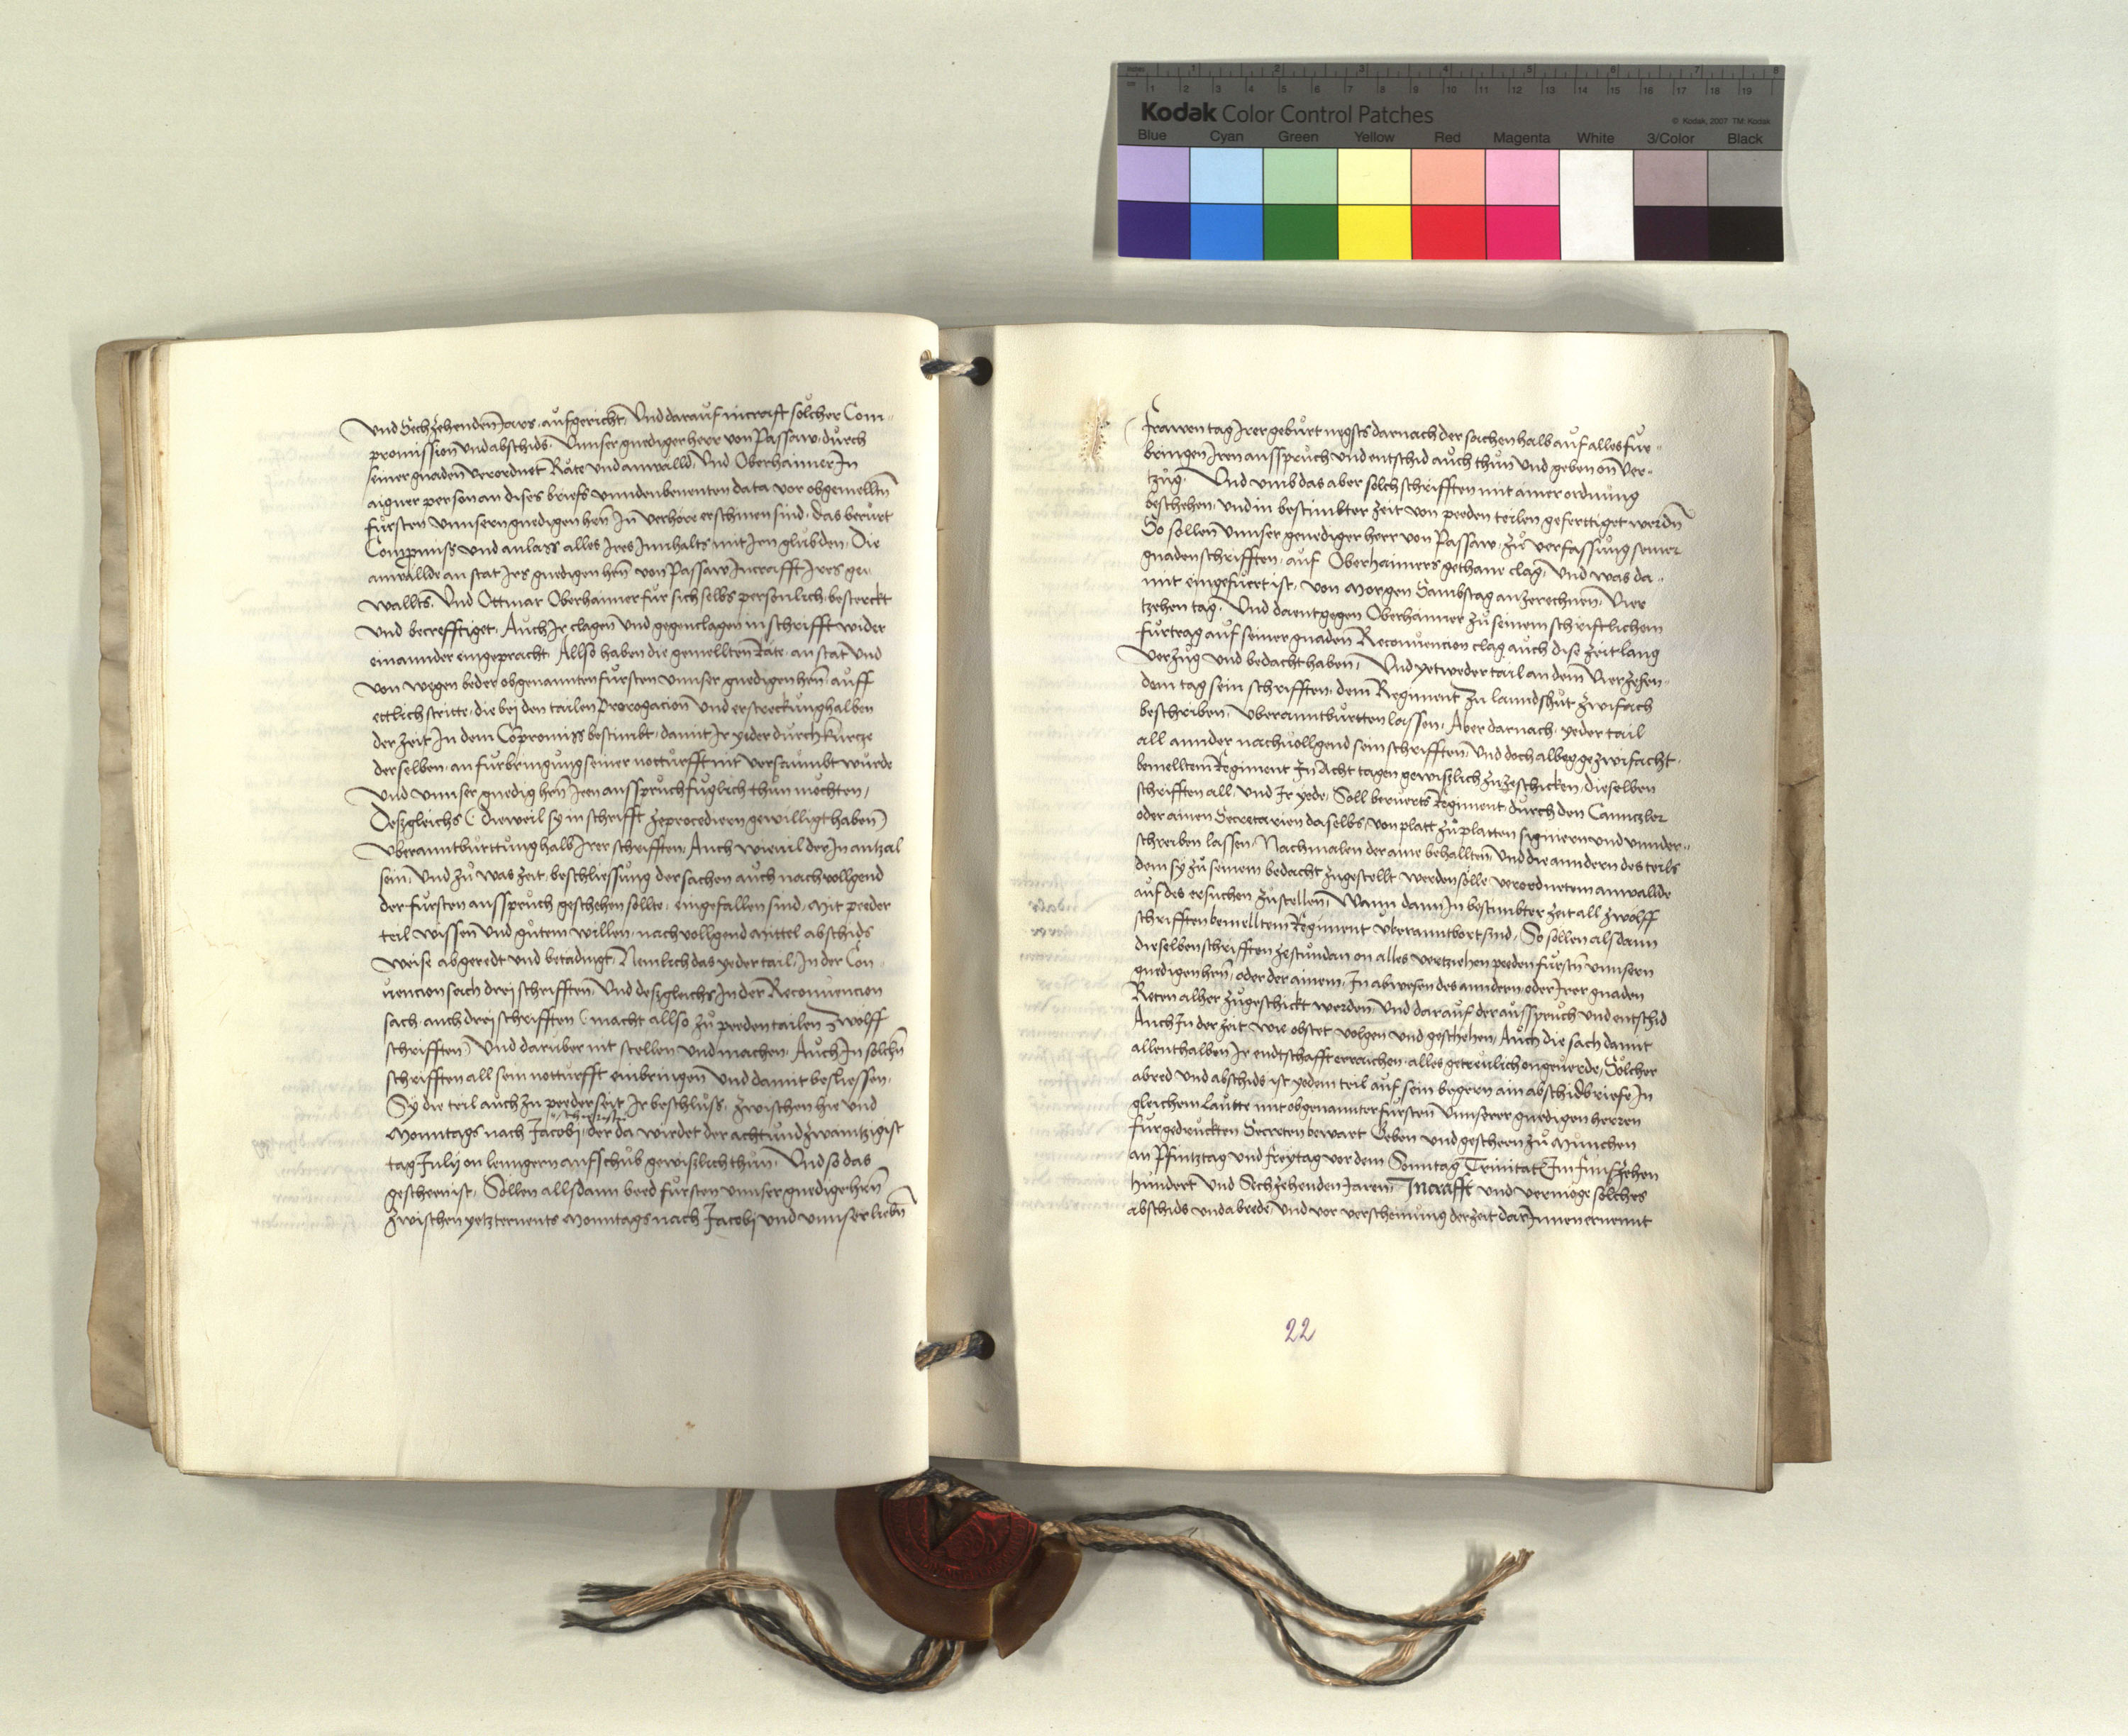 inches 1 2 3 4 5 6 7 8
cm 1 2 3 4 5 6 7 8 9 10 11 12 13 14 15 16 17 18 19
Kodak Color Control Patches © Kodak, 2007 TM: Kodak
Blue Cyan Green Yellow Red Magenta White 3/Color Black
Und Sechzehenden Jars aufgericht, Und darauf in craft solcher Com-
promission und abschids, Unnser gnediger herr von Passaw, durch
seiner gnaden verordnet Räte und anwälld, Und Oberhaimer In
aigner person an dises briefs unndenbenenten data vor obgemellten
fürsten unnsern gnedigen hern In verhöre erschinen sind, das berürt
Compromiss und anlass alles Ires Innhalts mit Iren glübden, Die
anwällde an stat Irs gnedigen hern von Passaw In crafft Ires ge-
wallts, Und Ottmar Oberhaimer für sich selbs personlich besterckt
und becrefftiget, Auch Ir clagen und gegenclagen in schrifft wider
einannder eingepracht, Allso haben die gemellten Räte, an stat und
von wegen beder obgenannten fürsten unnser gnedigen hern auff
ettlich stritte, die bej den tailen Prorogacion und erstreckung halben
der zeit In dem Copromiss bestimbt, damit Ir yeder durch kürtze
derselben, an fürbringung seiner notturfft nit versaumbt wurde
Und unnser gnedig hern Iren ausspruch fuglich thun möchten,
Deszgleichs (dieweil sy in schrifft zeprocediern gewilligt haben)
Uberanntburttung halb Irer schrifften, Auch wievil der In antzal
sein, Und zu was zeit, beschliessung der sachen auch nachvollgend
der fürsten ausspruch geschehen sollte, eingefallen sind, Mit peeder
teil wissen und gutem willen, nachvollgend Mittel abschids
weise abgeredt und betädingt, Nemlich das yeder tail, In der Con-
vencion seich drej schrifften, Und deszgleichs In der Reconvencion
sach, auch drej schrifften (macht allso zu peeden tailen zwölff
schrifften) Und darüber nit stellen und machen, Auch In solchen
schrifften all sein notturfft einbringen und damit besliessen,
Sy die teil auch zu peederseit Ir beschluss, zwischen hie und
Monntags nach Jacobj, der da wirdet der achtundzwaintzigist
tag Julij on lenngern aufschub gewiszlich thun, Und so das
geschehen ist, Sollen allsdann beed fürsten unnser gnedige hern
zwischen yetzternents Monntags nach Jacobj und unnser lieben
Frawen tag Irer geburt negsts darnach der sachen halb auf alles für-
bringen Iren ausspruch und entschid auch thun und geben on ver-
tzug, Und umb das aber solch schrifften mit ainer ordnung
beschehen, und in bestimbter zeit von peeden teilen gefertiget werden
So sollen unnser genediger herr von Passaw, zu verfassung seiner
gnaden schrifften, auf Oberhaimers gethane clag, Und was da-
mit eingefuert ist, von Morgen Sambstag anzerechnen, Vier
tzehen tag, Und darentgegen Oberhaimer zu seinem schriftlichem
furtrag auf seiner gnaden Reconvencion clag auch dise zeit lang
Verzug und bedacht haben, Und yetweder tail an dem Vierzehen-
dem tag sein schrifften, dem Regiment zu lanndshut zwifach
beschriben, Uberanntburtten lassen, Aber darnach, yeder tail
all annder nachvollgend sein schrifften, und doch albeg gezwifacht,
bemelltem Regiment In Acht tagen gewiszlich zuzeschicken, dieselben
schrifften all, und Ir yede, Soll berurts Regiment durch den Canntzler
oder ainen Secretarien daselbs, von platt zu platten signiern und unnder-
schreiben lassen, Nachmalen der aine behallten, Und die anndern des teils
dem sy zu seinem bedacht zugestellt werden solle verordnetem anwallde
auf des ersuchen zustellen, Wann dann In bestimbter zeit all zwölff
schrifften bemelltem Regiment uberanntbort sind, So sollen alsdann
dieselben schrifften zestundan on alles vertziehen peeden fürsten unnsern
gnedigen hern, oder der ainem, In abwesen des anndern oder Irer gnaden
Reten alher zugeschickt werden, Und darauf der ausspruch und entschid
Auch In der zeit wie obstet volgen und geschehen, Auch die sach damit
allenthalben Ir endtschafft erraichen, alles getreulich ongeuerde, Solcher
abred und abschids ist yedem teil auf sein begern ain abschidbriefe In
gleichem Lautte mit obgenannter fürsten unnserer gnedigen herren
furgedruckten Secreten bewart Geben und geschehen zu München
an Pfintztag und freytag vor dem Sonntag Trinitatis Im funfzehen
hundert und Sechzehenden Jaren, In crafft und vermöge solches
abschids und abrede, Und vor verscheinung der zeit darInnen ernennt
22